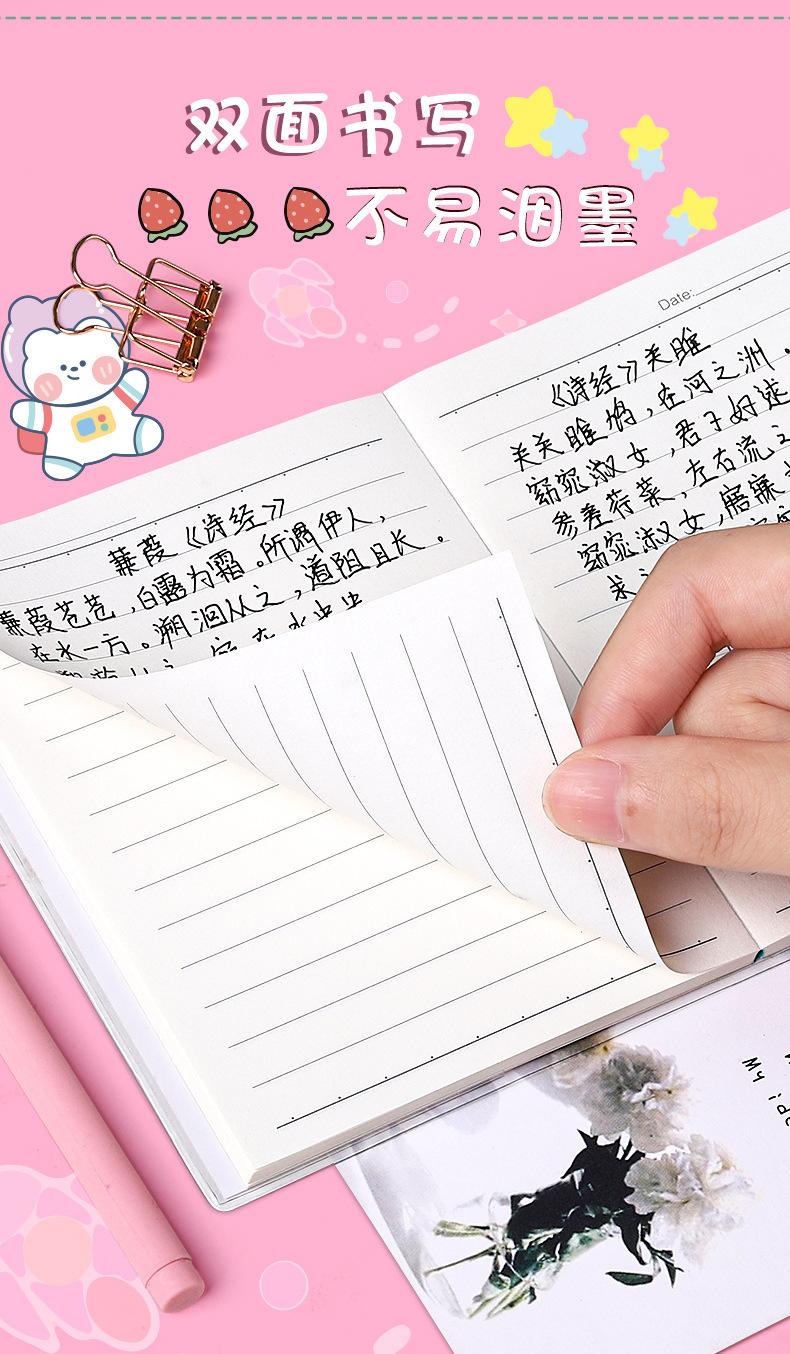 双面书写
不易洇墨
Date:
《诗经》关雎
关关雎鸠,在河之洲。
窈窕淑女,君子好逑
参差荇菜,左右流之
窈窕淑女,寤寐
求之
蒹葭《诗经》
蒹葭苍苍,白露为霜。所谓伊人,
在水一方。溯洄从之,道阻且长。
My